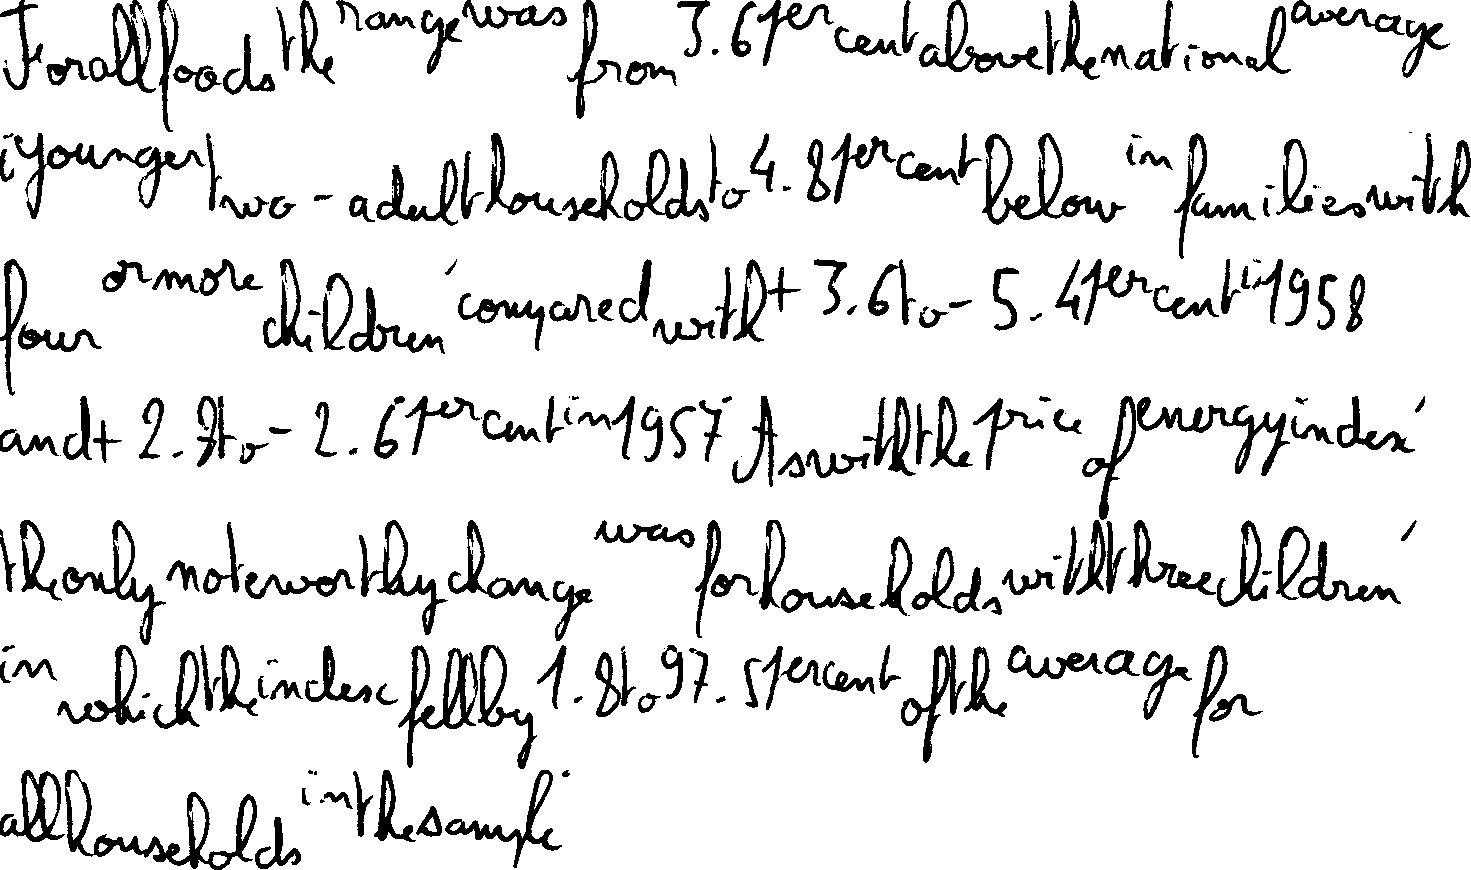 For all foods the range was from 3.6 per cent above the national average
i younger two-adult households to 4.8 per cent below in families with
four or more children, compared with + 3.6 to - 5.4 per cent in 1958
and + 2.7 to - 2.6 per cent in 1957. As with the price of energy index,
the only noteworthy change was for households with three children,
in which the index fell by 1.8 to 97.5 per cent of the average for
all households in the sample.